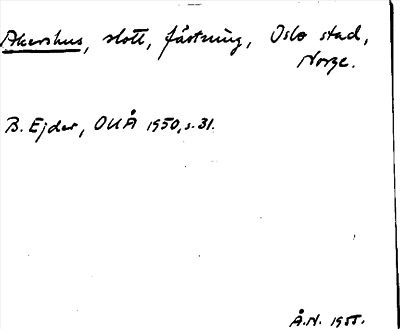 Akershus, slott, fästning, Oslo stad,
Norge.
B. Ejder, OUÅ 1950, s. 31.
Å.N. 1955.